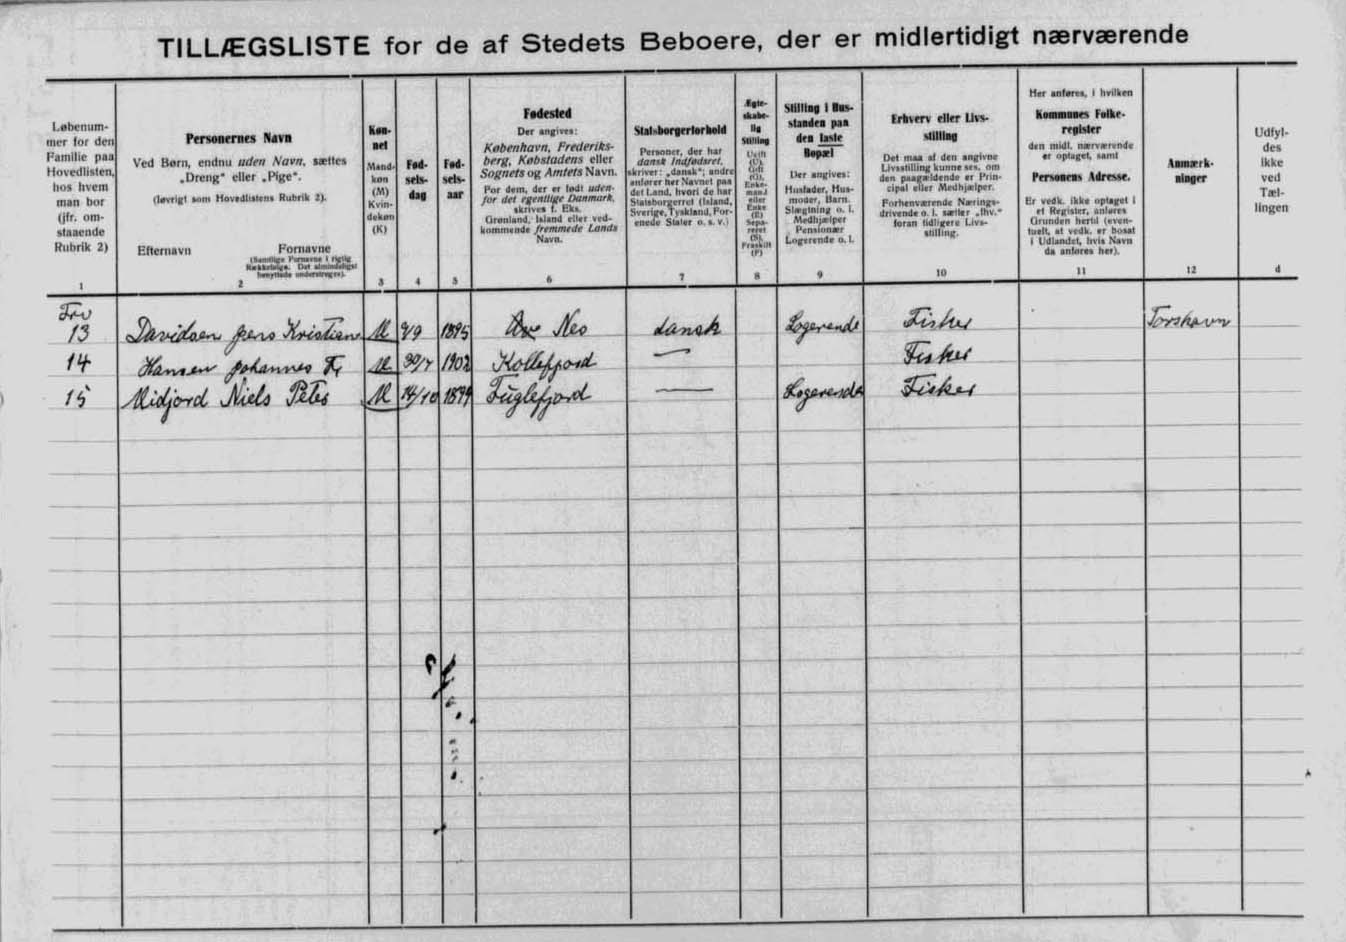 TILLÆGSLISTE for de af Stedets Beboere, der er midlertidigt nærværende
Løbenum-
mer for den
Familie paa
Hovedlisten,
hos hvem
man bor
(jfr. om-
staaende
Rubrik 2)
1
Personernes Navn
Ved Børn, endnu uden Navn, sættes
„Dreng“ eller „Pige“.
(Iøvrigt som Hovedlistens Rubrik 2).
Efternavn Fornavne
(Samtlige Fornavne i rigtig
Rækkefølge. Det almindeligst
benyttede understreges).
2
Køn-
net
Mand-
køn
(M)
Kvin-
dekøn
(K)
3
Fød-
sels-
dag
4
Fød-
sels-
aar
5
Fødested
Der angives:
København, Frederiks-
berg, Købstadens eller
Sognets og Amtets Navn.
For dem, der er født uden-
for det egentlige Danmark,
skrives f. Eks.
Grønland, Island eller ved-
kommende fremmede Lands
Navn.
6
Statsborgerforhold
Personer, der har
dansk Indfødsret,
skriver: „dansk“; andre
anfører her Navnet paa
det Land, hvori de har
Statsborgerret (Island,
Sverige, Tyskland, For-
enede Stater o. s. v.)
7
Ægte-
skabe-
lig
Stilling
Ugift
(U),
Gift
(G),
Enke-
mand
eller
Enke
(E)
Sepa-
reret
(S),
Fraskilt
(F)
8
Stilling i Hus-
standen paa
den faste
Bopæl
Der angives:
Husfader, Hus-
moder, Barn,
Slægtning o. l.
Medhjælper
Pensionær
Logerende o. l.
9
Erhverv eller Livs-
stilling
Det maa af den angivne
Livsstilling kunne ses, om
den paagældende er Prin-
cipal eller Medhjælper.
Forhenværende Nærings-
drivende o. l. sætter „fhv.“
foran tidligere Livs-
stilling.
10
Her anføres, i hvilken
Kommunes Folke-
register
den midl. nærværende
er optaget, samt
Personens Adresse.
Er vedk. ikke optaget i
et Register, anføres
Grunden hertil (even-
tuelt, at vedk. er bosat
i Udlandet, hvis Navn
da anføres her).
11
Anmærk-
ninger
12
Udfyl-
des
ikke
ved
Tæl-
lingen
d
13 Davidsen Jens Kristian M 9/9 1895 Nes dansk Logerende Fisker Torshavn
14 Hansen Johannes Fr M 30/7 1902 Kollefjord — Fisker
15 Midjord Niels Peter M 14/10 1899 Fuglefjord — Logerende Fisker